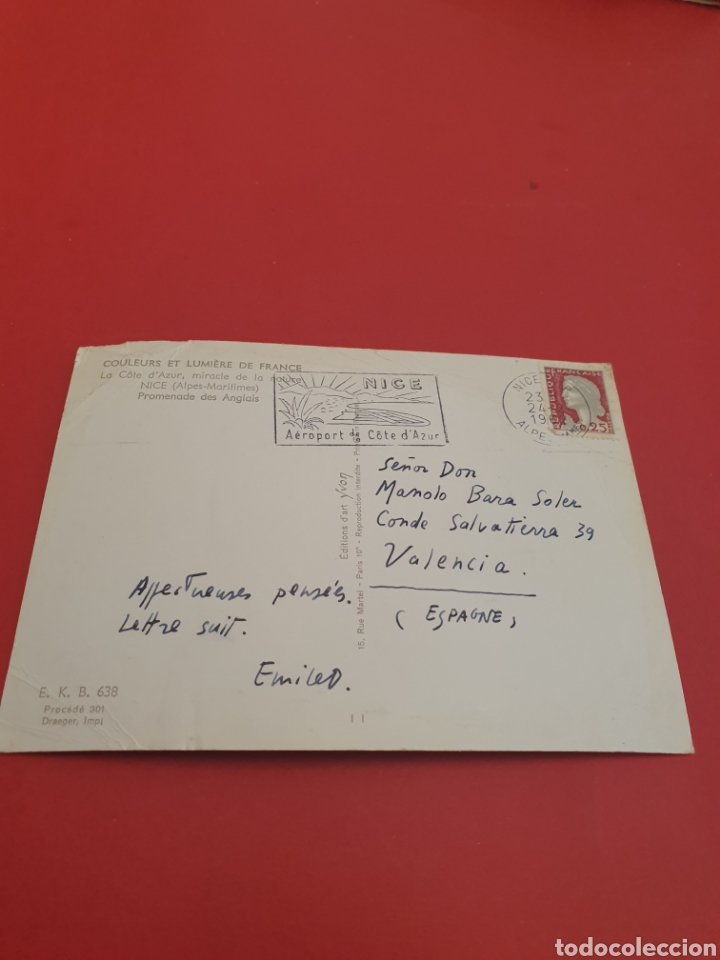 COULEURS ET LUMIÈRE DE FRANCE
La Côte d'Azur, miracle de la nature
NICE (Alpes-Maritimes)
Promenade des Anglais
NICE
Aéroport de Côte d'Azur
NICE
23
24
ALPES
RÉPUBLIQUE FRANÇAISE
0,25
Editions d'art Yvon
15, Rue Martel - Paris 10e - Reproduction interdite -
Señor Don
Manolo Bara Soler
Conde Salvatierra 39
Valencia.
(ESPAGNE)
Affectueuses pensées.
Lettre suit.
E. K. B. 638
Procédé 301
Draeger, Imp.
todocoleccion